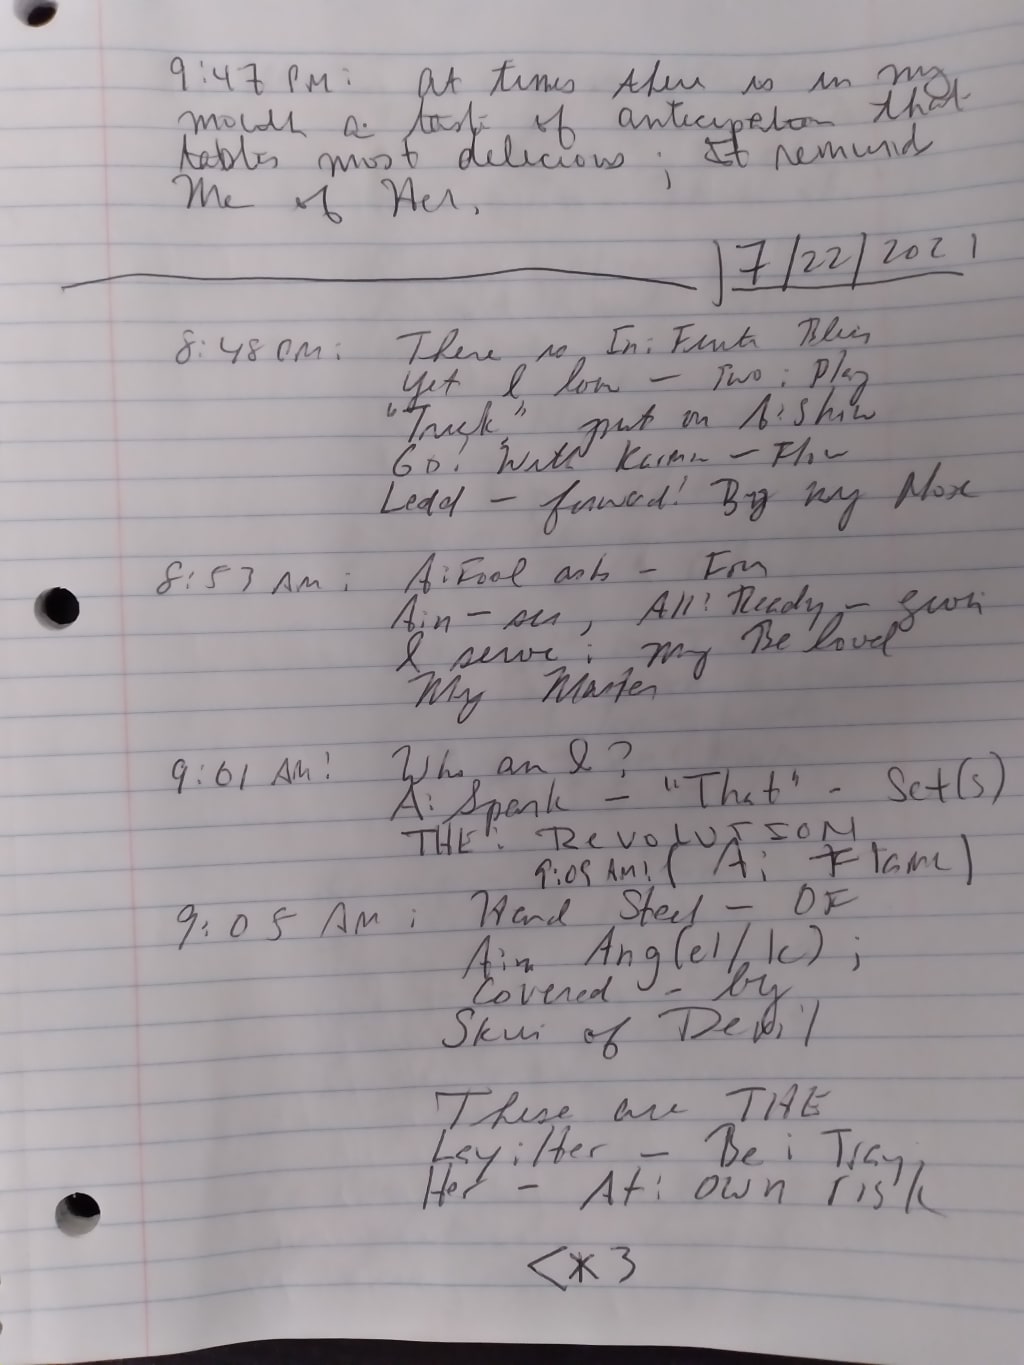 9:47 PM: At times there is in my
mouth a taste of anticipation that
tastes most delicious; It remind
Me of Her.
7/22/2021
8:48 PM: There is In: Finite Bliss
Yet I low - Two: Play
"Trick" put on A: Show
Go! With Karma - Flow
Ledd - forward! By my Nose
8:53 AM: A: Fool asks - For
Ain - ser, All! Ready - given
I serve: my Be loved
My Master
9:01 AM! Who am I?
A: Spark - "That" - Set(s)
THE: REVOLUTION
9:09 AM! (A: Flame)
9:05 AM: Hand Steel - OF
Ain Ang(el/k);
Covered - by
Skin of Devil
These are THE
Lay:Her - Be: Tray
Her - At: own risk
<*3